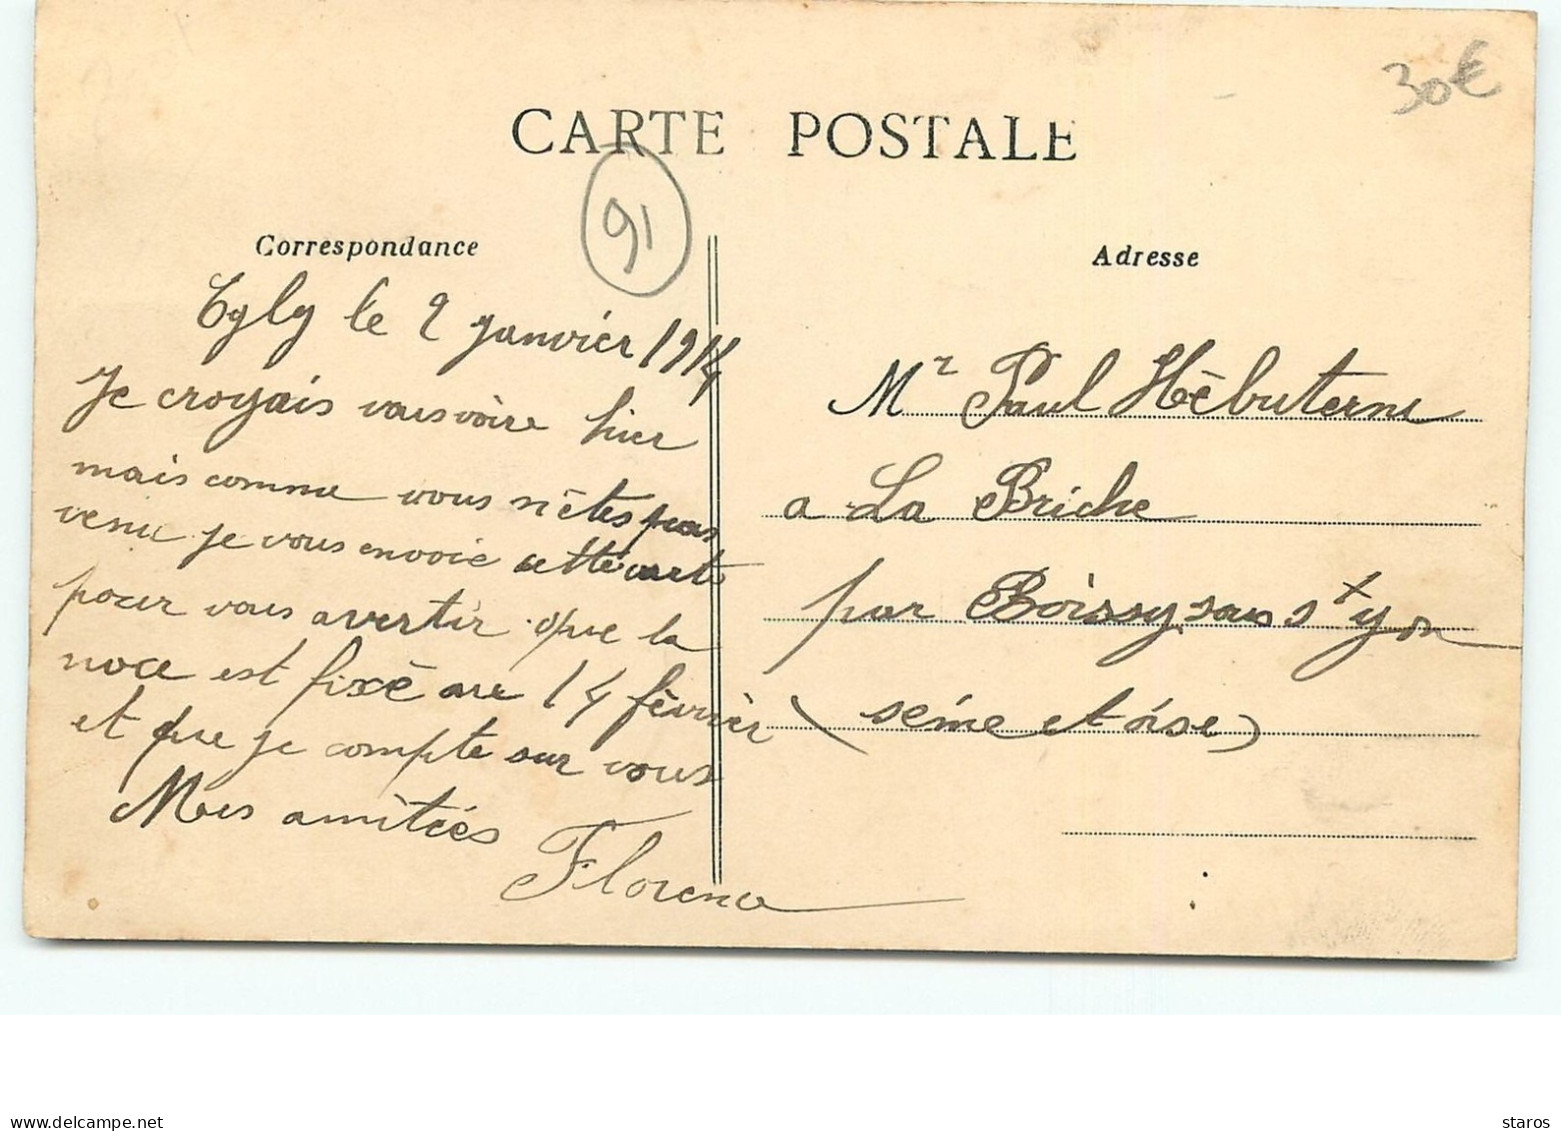 30€
CARTE POSTALE
91
Correspondance
Egly le 2 janvièr 1914
Je croyais vous voire hier
mais comme vous n'êtes pas
venu je vous envoie cette carte
pour vous avertir que la
noce est fixé au 14 févrièr
et que je compte sur vous
Mes amitiés
Florence
Adresse
Mr Paul Hébuterne
a La Briche
par Boissy sous st yon
(seine et oise)
delcampe.net
staros